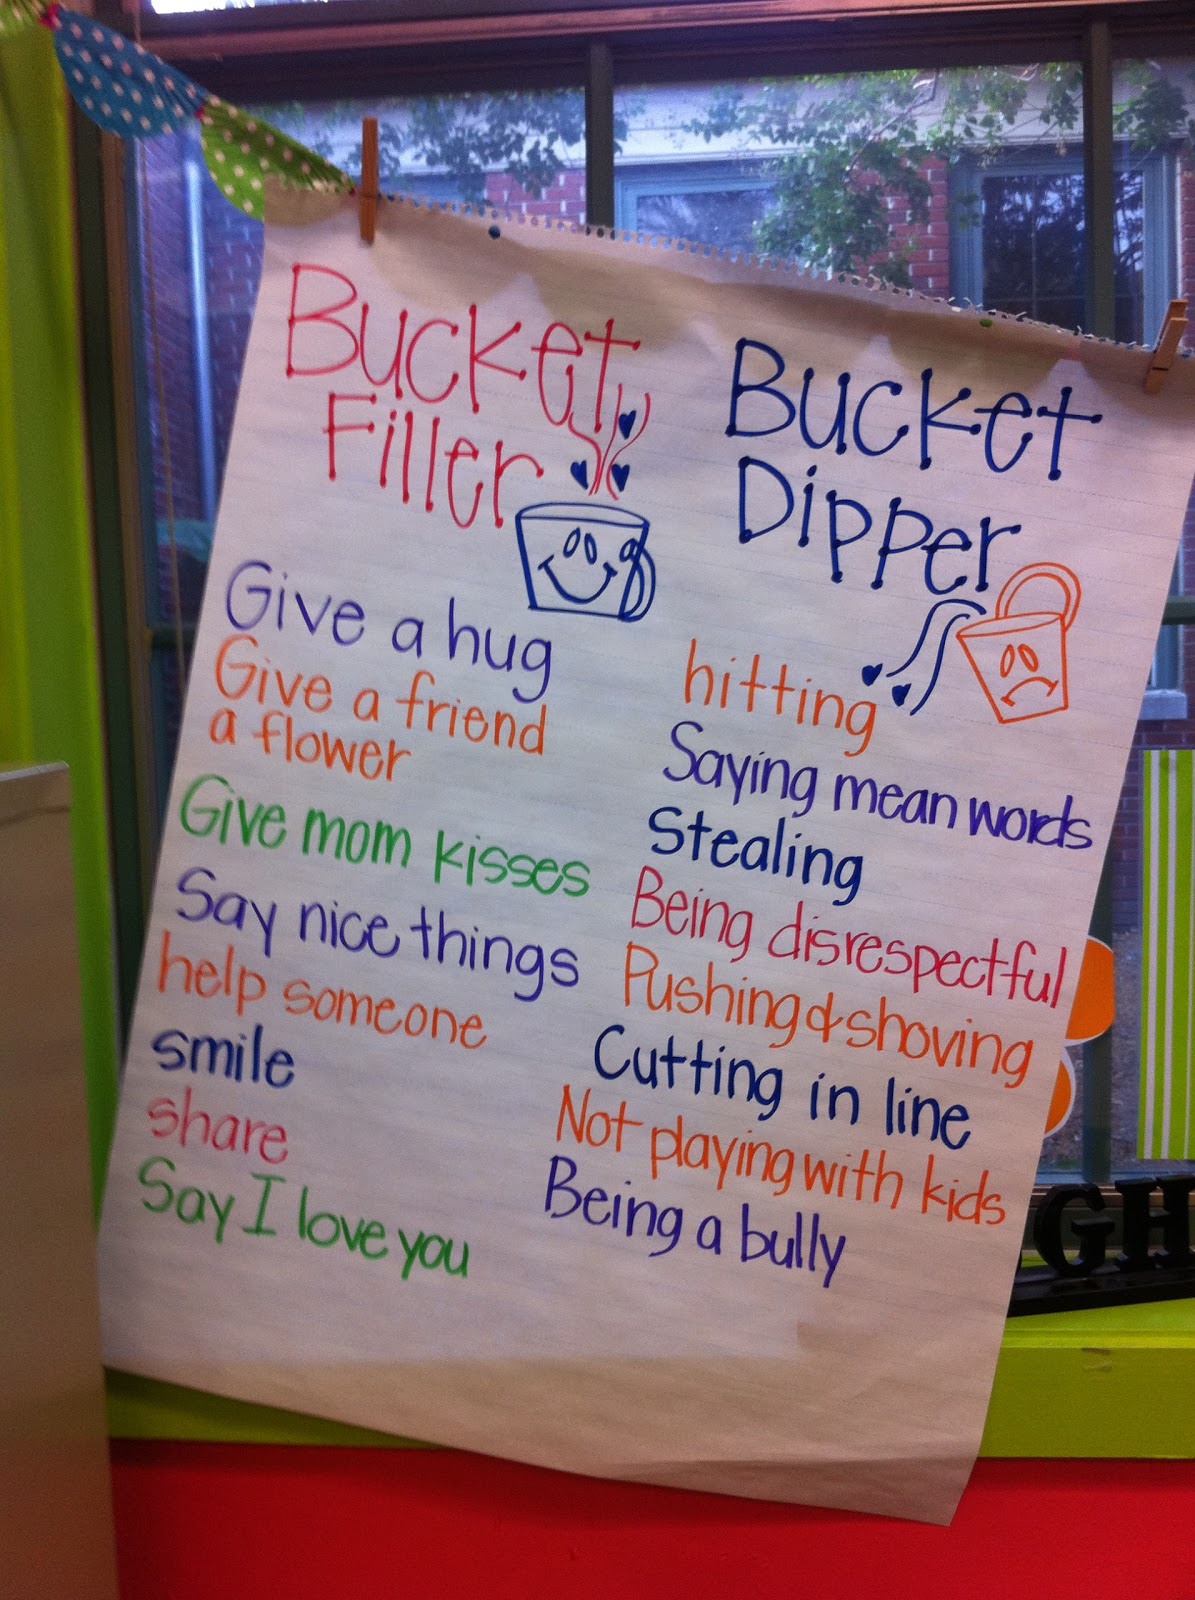 Bucket
Filler
Give a hug
Give a friend
a flower
Give mom kisses
Say nice things
help someone
smile
share
Say I love you
Bucket
Dipper
hitting
Saying mean words
Stealing
Being disrespectful
Pushing & shoving
Cutting in line
Not playing with kids
Being a bully
GH